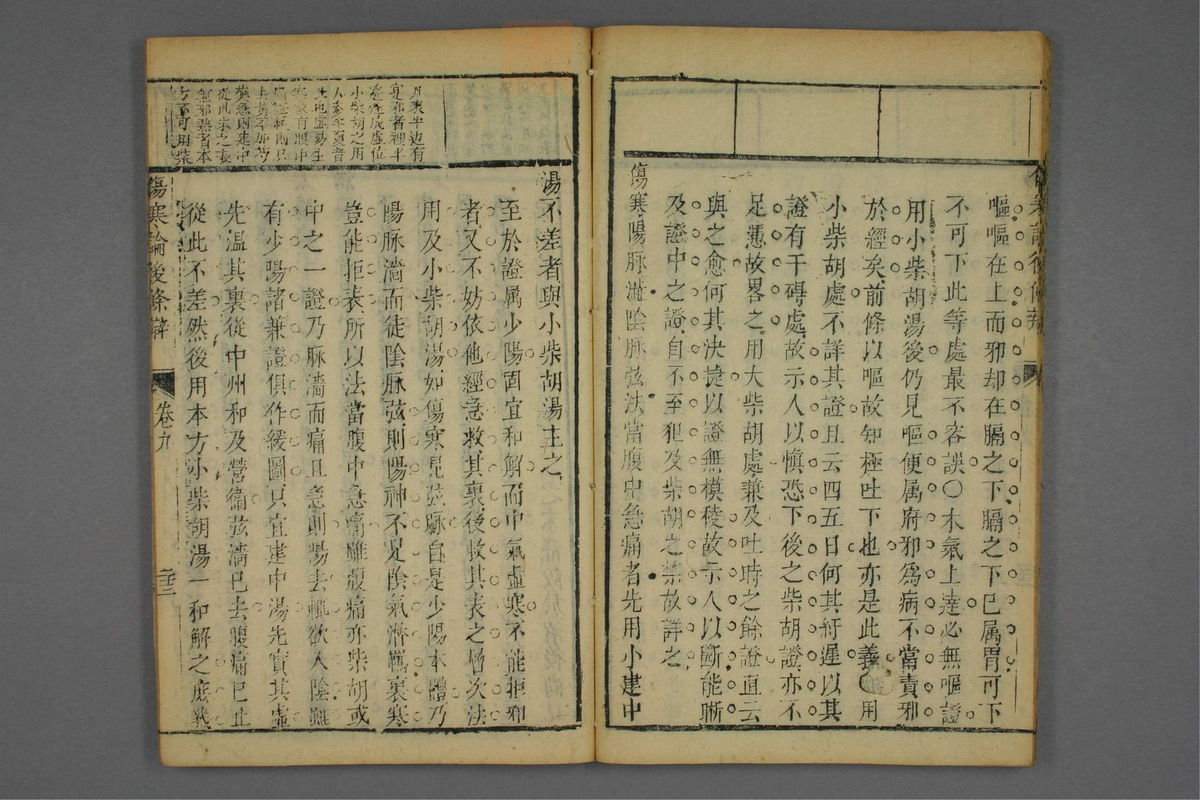 嘔嘔在上而邪却在膈之下膈之下已属胃可下
不可下此等處最不容誤〇木氣上達必無嘔證
用小柴胡湯後仍見嘔便属府邪爲病不當責邪
於經矣前條以嘔故知極吐下也亦是此義〇用
小柴胡處不詳其證且云四五日何其紆遲以其
證有干碍處故示人以慎恐下後之柴胡證亦不
足憑故畧之用大柴胡處兼及吐時之餘證直云
與之愈何其決捷以證無模稜故示人以斷能晰
及證中之證自不至犯及柴胡之禁故詳之
傷寒陽脉澁陰脉弦法當腹中急痛者先用小建中
湯不差者與小柴胡湯主之
至於證属少陽固宜和解而中氣虛寒不能拒邪
者又不妨依他經急救其裏後救其表之增次法
用及小柴胡湯如傷寒見弦脉自是少陽本體乃
陽脉濇而徒陰脉弦則陽神不足陰氣裏寒
豈能拒表所以法當腹中急痛雖腹痛亦柴胡或
中之一證乃脉濇而痛且急則陽去輒欲入陰雖
有少陽諸兼證俱作緩圖只宜建中湯先實其虛
先温其裏從中州和及營衛弦濇已去腹痛已止
從此不差然後用本方小柴胡湯一和解之庶幾
凡表半邊有
寔邪者裡半
邊每成虛位
小柴胡之用
人參半夏者
傷寒論後條辯
卷九
二十三